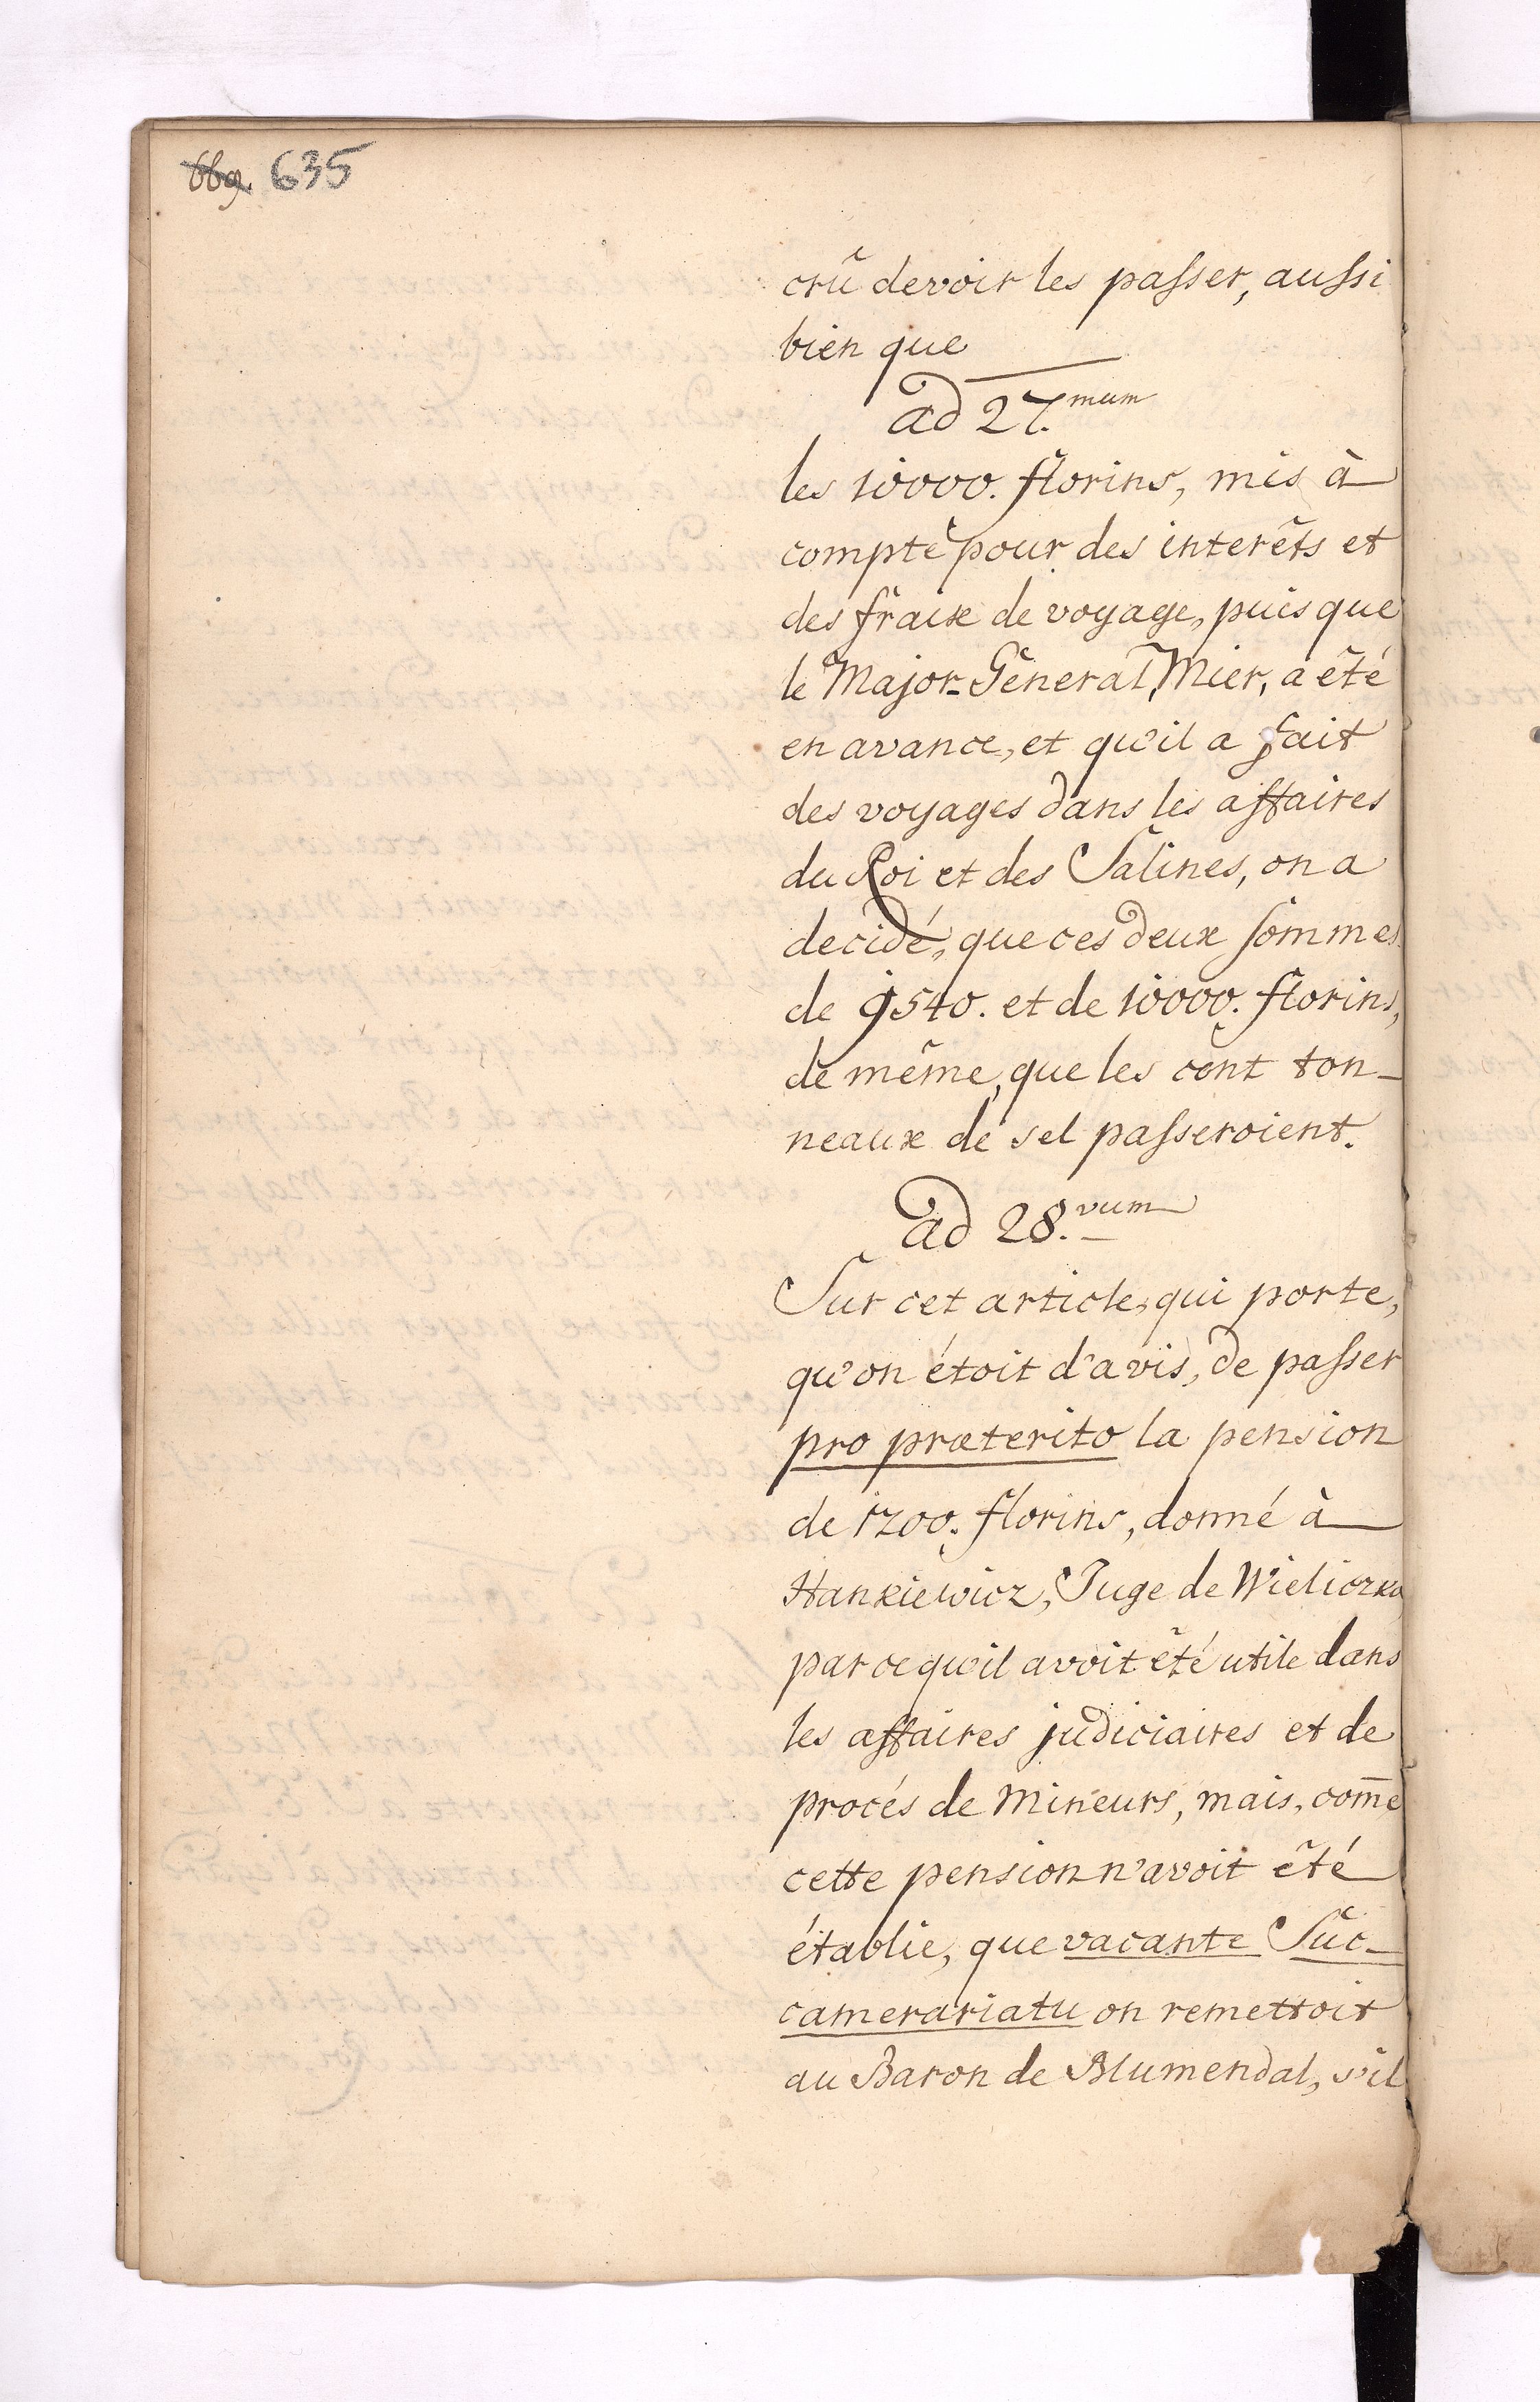 669. 635
crû devoir les passer, aussi
bien que
ad 27.mum
les 10000. florins, mis à
compte pour des interêts et
des fraix de voyage, puisque
le Major-Géneral, Mier, a été
en avance, et qu'il a fait
des voyages dans les affaires
du Roi et des Salines, on a
decidé, que ces deux sommes
de 9540. et de 10000. florins,
de même, que les cent ton-
neaux de sel passeroient.
ad 28.vum
Sur cet article, qui porte,
qu'on étoit d'avis, de passer
pro præterito la pension
de 1200. florins, donné à
Hankiewicz, Juge de Wieliczka,
parcequ'il avoit été utile dans
les affaires judiciaires et de
procés de Mineurs, mais, com̄e
cette pension n'avoit été
établie, que vacante Suc-
camerariatu on remettoit
au Baron de Blumendal, s'il